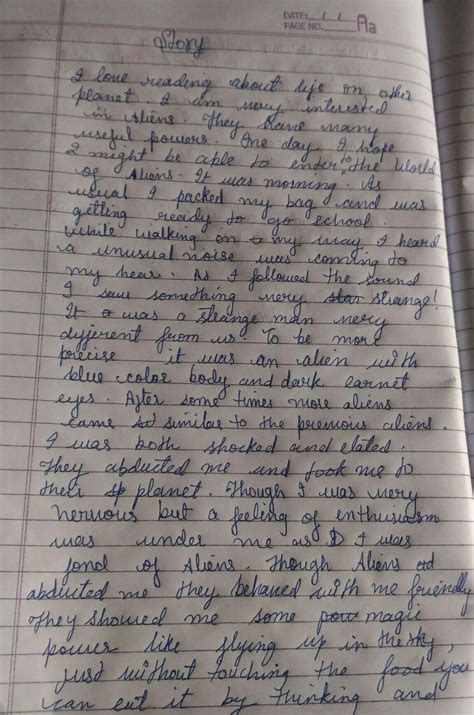 DATE: / /
PAGE NO.
Aa
Story
I love reading about life on other
planet. I am very interested
in Aliens. They have many
useful powers. One day, I hope
I might be able to enter to the World
of Aliens. It was morning. As
usual I packed my bag and was
getting ready to go school.
While walking on my way I heard
a unusual noise was comming to
my hear. As I followed the sound
I saw something very strange!
It was a strange man very
different from us. To be more
precise it was an alien with
blue color body and dark
eyes. After some times more aliens
came similar to the previous aliens.
I was both shocked and elated.
They abducted me and took me to
their planet. Though I was very
nervous but a feeling of enthusiasm
was under me as I was
fond of Aliens. Though Aliens
abducted me they behaved with me friendly
They showed me some magic
power like flying up in the sky,
just without touching the food you
can eat it by thinking and